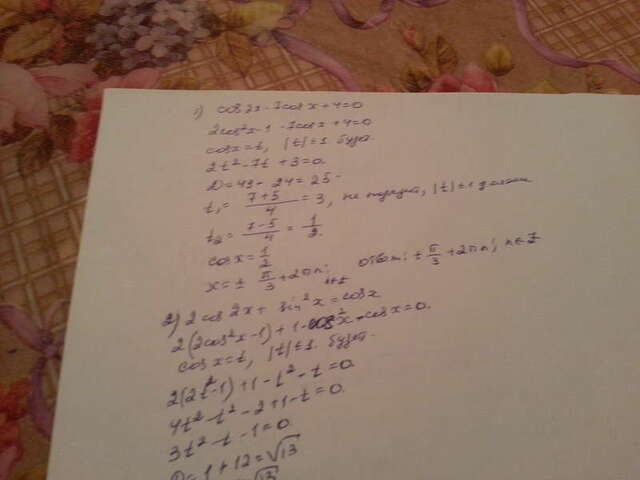 1) cos2x-7cosx+4=0
2cos²x-1-7cosx+4=0
cosx=t, |t|≤1 будет.
2t²-7t+3=0.
D=49-24=25
t₁= 7+5/4 =3, не подходит, |t|≤1
t₂= 7-5/4 = 1/2.
cosx=1/2
x=± π/3+2πn; n∈Z ответ: ±π/3+2πn; n∈Z
2) 2cos2x+sin²x=cosx
2(2cos²x-1)+1-cos²x-cosx=0.
cosx=t, |t|≤1 будет.
2(2t²-1)+1-t²-t=0.
4t²-t²-2+1-t=0.
3t²-t-1=0.
D=1+12=√13
√13